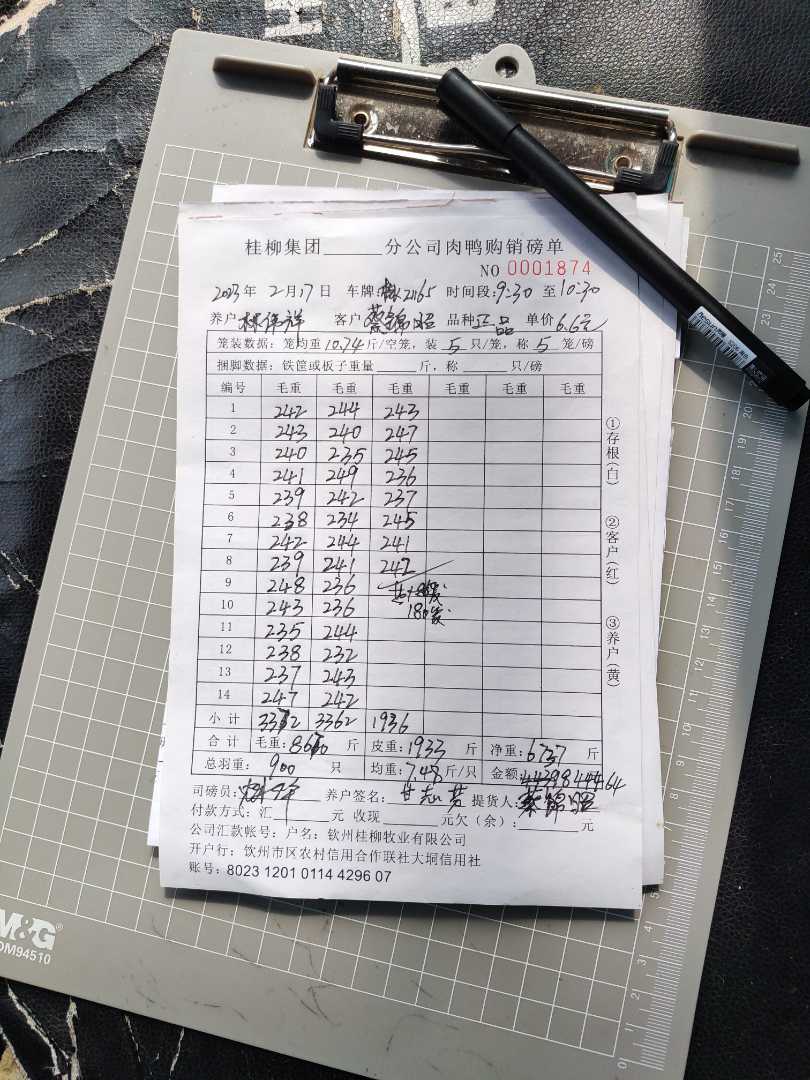 桂柳集团______分公司肉鸭购销磅单
NO 0001874
2023年 2月17日 车牌:21165 时间段:9:30 至10:30
养户:林伟祥 客户 蔡锦昭 品种 正品 单价 6.6元
笼装数据: 笼均重 10.74 斤/空笼, 装 5 只/笼, 称 5 笼/磅
捆脚数据: 铁筐或板子重量______斤, 称______只/磅
编号 毛重 毛重 毛重 毛重 毛重 毛重
1 242 244 243
2 243 240 247
3 240 235 245
4 241 249 236
5 239 242 237
6 238 234 245
7 242 244 241
8 239 241 242
9 248 236
10 243 236 180
11 235 244
12 238 232
13 237 243
14 247 242
小计 3372 3362 1936
合计 毛重:8670 斤 皮重:1933 斤 净重:6737 斤
总羽重: 900 只 均重:7.48 斤/只 金额: 44464
司磅员: 养户签名: 甘志芳 提货人: 蔡锦昭
付款方式: 汇______元 收现______元欠(余):______元
公司汇款帐号: 户名: 钦州桂柳牧业有限公司
开户行: 钦州市区农村信用合作联社大垌信用社
账号: 8023 1201 0114 4296 07
①存根(白)
②客户(红)
③养户(黄)
M&G
DM94510
0 1 2 3 4 5 6 7 8 9 10 11 12 13 14 15 16 17 18 19 20 21 22 23 24 25